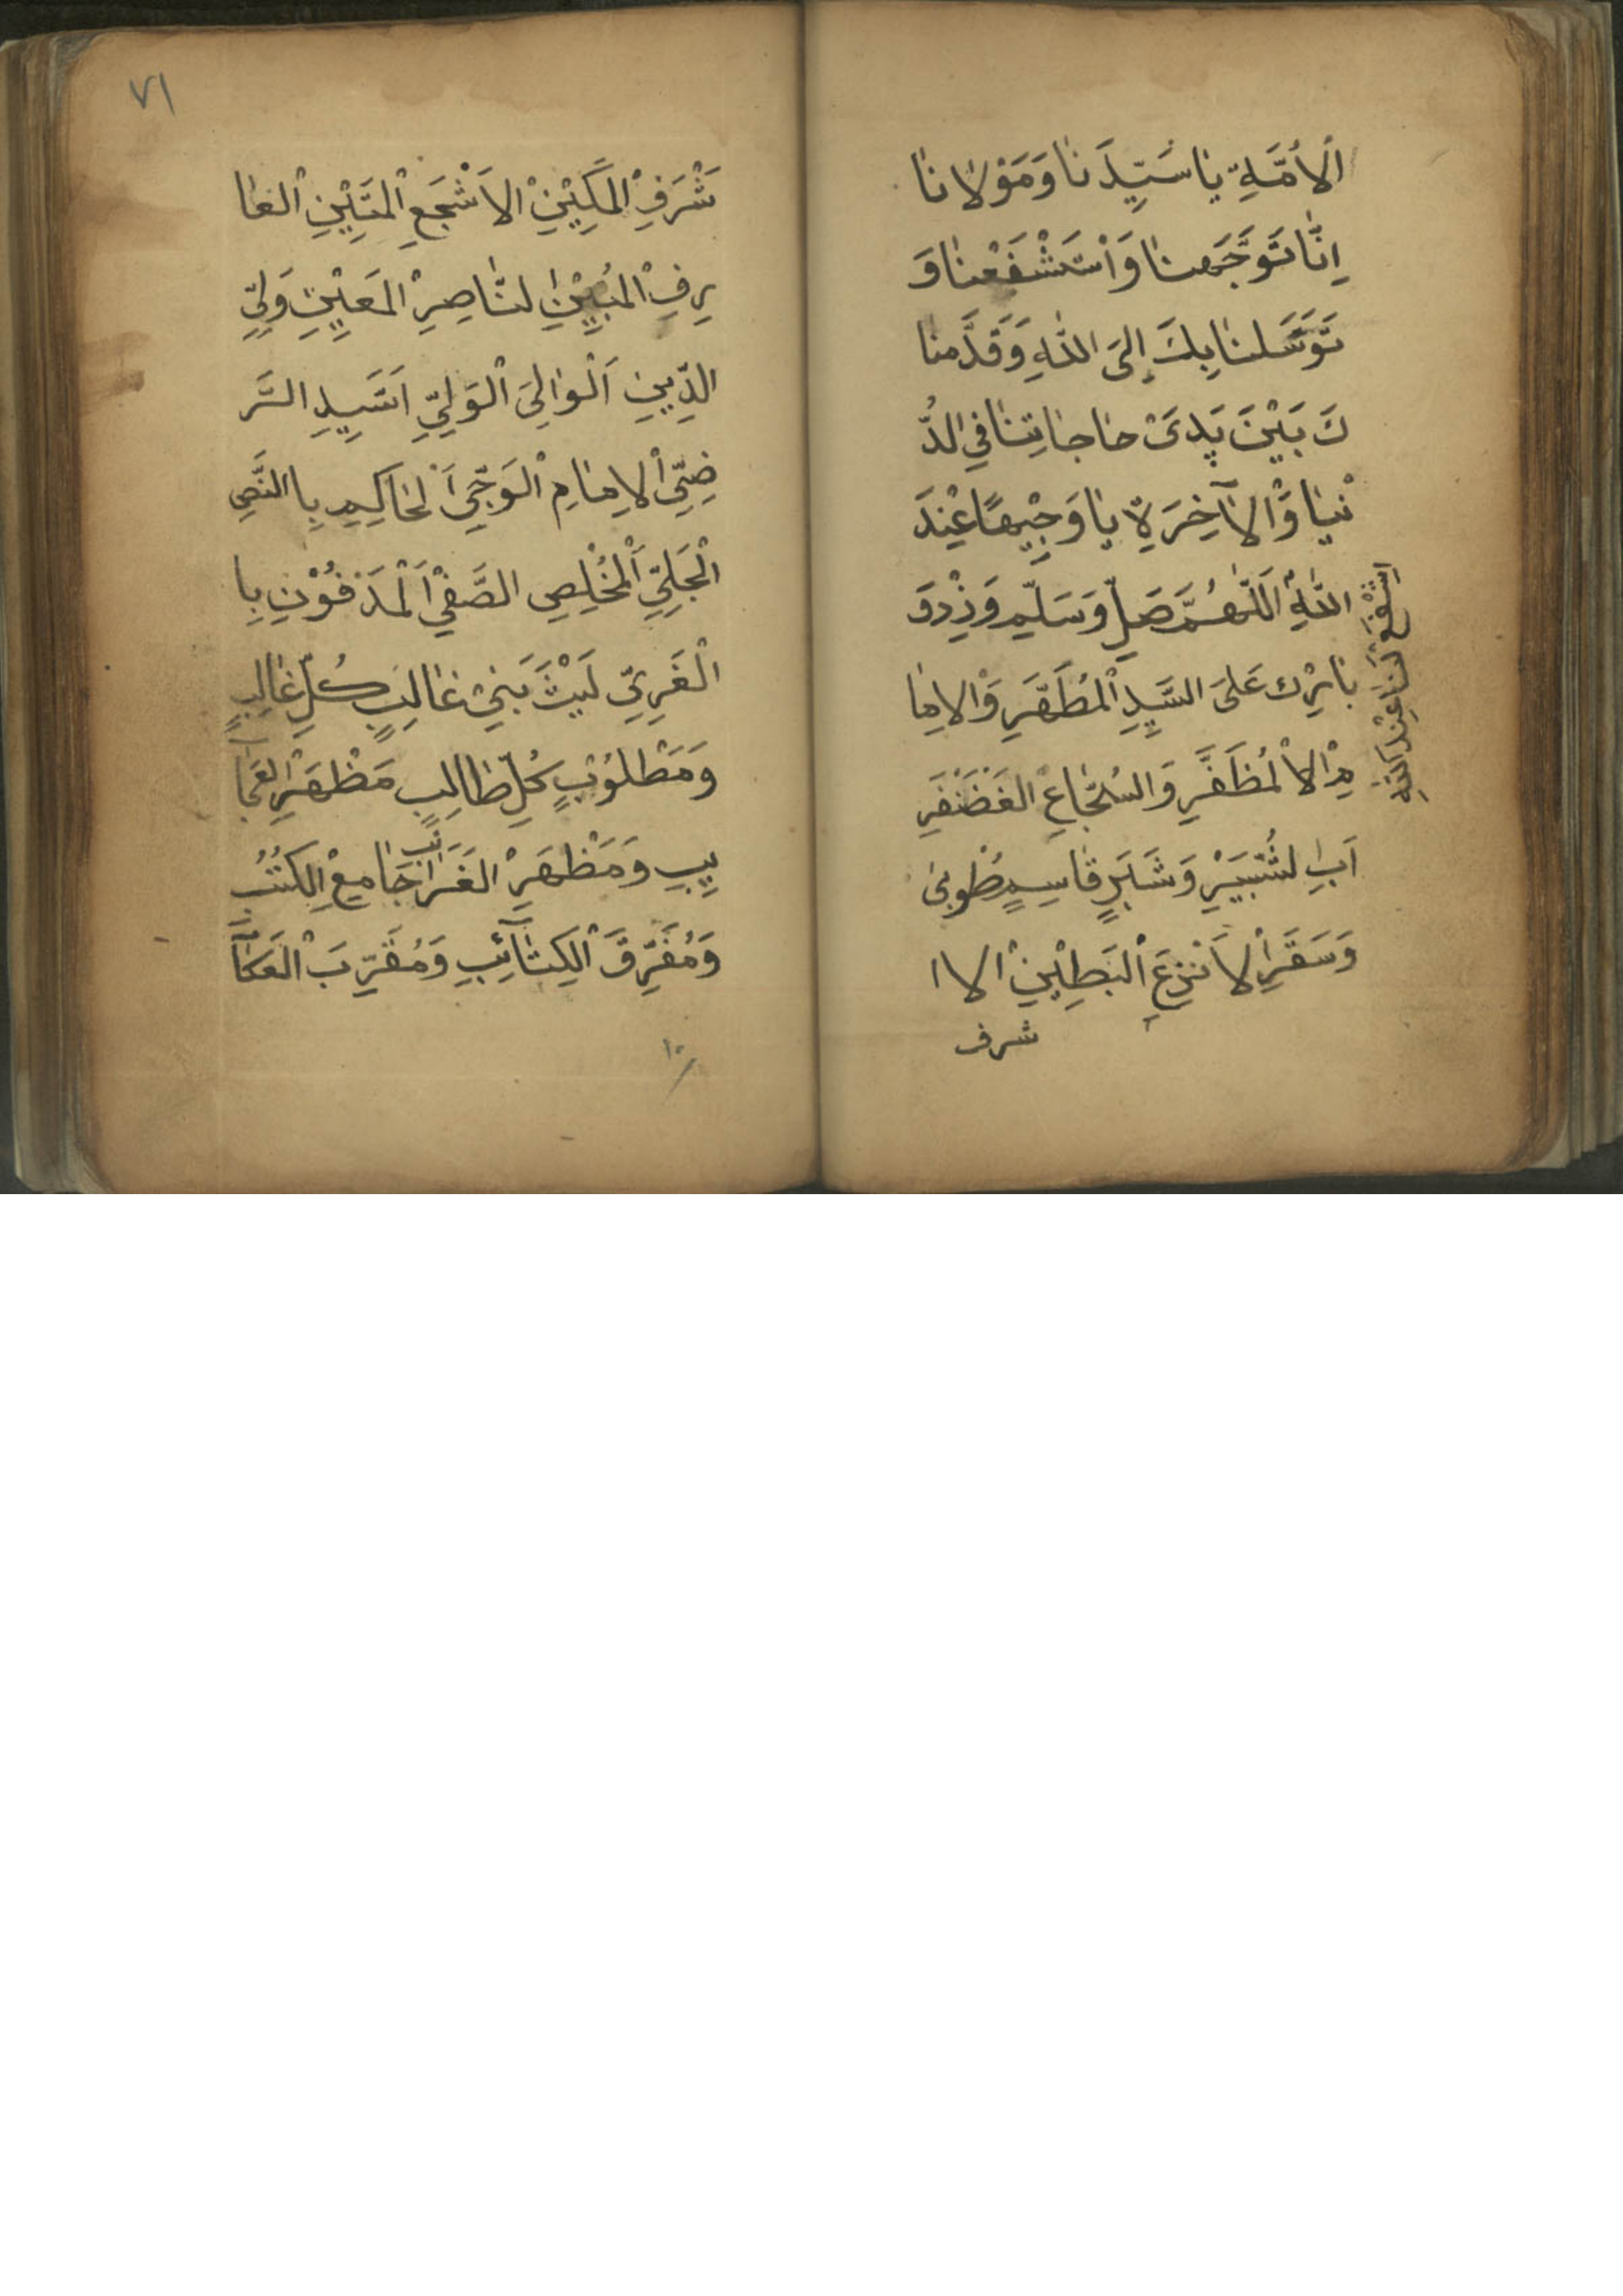 اَلاُمَّةِ يَا سَيِّدَنَا وَمَوْلَانَا
اِنَّا تَوَجَّهنَا وَاسْتَشْفَعْنَا وَ
تَوَسَّلنَا بِكَ اِلَى اللهِ وَقَدَّمنَا
كَ بَيْنَ يَدَىْ حَاجَاتِنَا فِى الدُّ
نْيَا وَالْاٰخِرَةِ يَا وَجِيْهًا عِنْدَ
اللهِ اَللّٰهُمَّ صَلِّ وَسَلِّمِ وَزِدْوَ
بَارِكْ عَلَى السَّيِدِ الْمُطَهَّرِ وَالْاِمَا
مِ الْاَلْمُظَفَّرِ وَالشُجَاعِ الغَضَنْفَرِ
اَبِى لشُبَيْرِ وَشَبَرٍ قَاسِمِ طُوبىٰ
وَسَقَرِ الْاَنْزِعَ الْبَطِيْنِ الْاا
شرف
اشْفَعْ لَنَا عِنْدَ اللهِ
٧١
شْرَفِ الْمَكِيْنِ الْاَشْجَعِ الْمَتِيْنِ الْعَا
رِفِ الْمُبِيْنِ لنَّاصِرِ الْمَعِيْنِ وَلِىِّ
الدِّيِنِ اَلْوَالِىَ الْوَلِىِّ اَسَّيِدِ الرَّ
ضِىِّ الْاِمَامِ الْوَجِّىِ اَلْحَاكِمِ بِاالنَّصِ
الْجَلِىِّ اَلْمُخْلِصِ الصَّفِىْ اَلْمَدْفُوْنِ بِا
الْغَرِىِّ لَيْثَ بَنِىْ غَالِبِ كُلِّ غَالِبٍ
وَمَطْلُوْبٍ كُلِّ طَالِبٍ مَظْهَرِ الْعَجَا
يِبِ وَمَظْهَرِ الغَرَائِبٍ جَامِعِ الكُتُبِ
وَمُفَرِّقَ الْكِتَآئِبِ وَمُقَرِّبَ الْعَكَاۤ
١٠